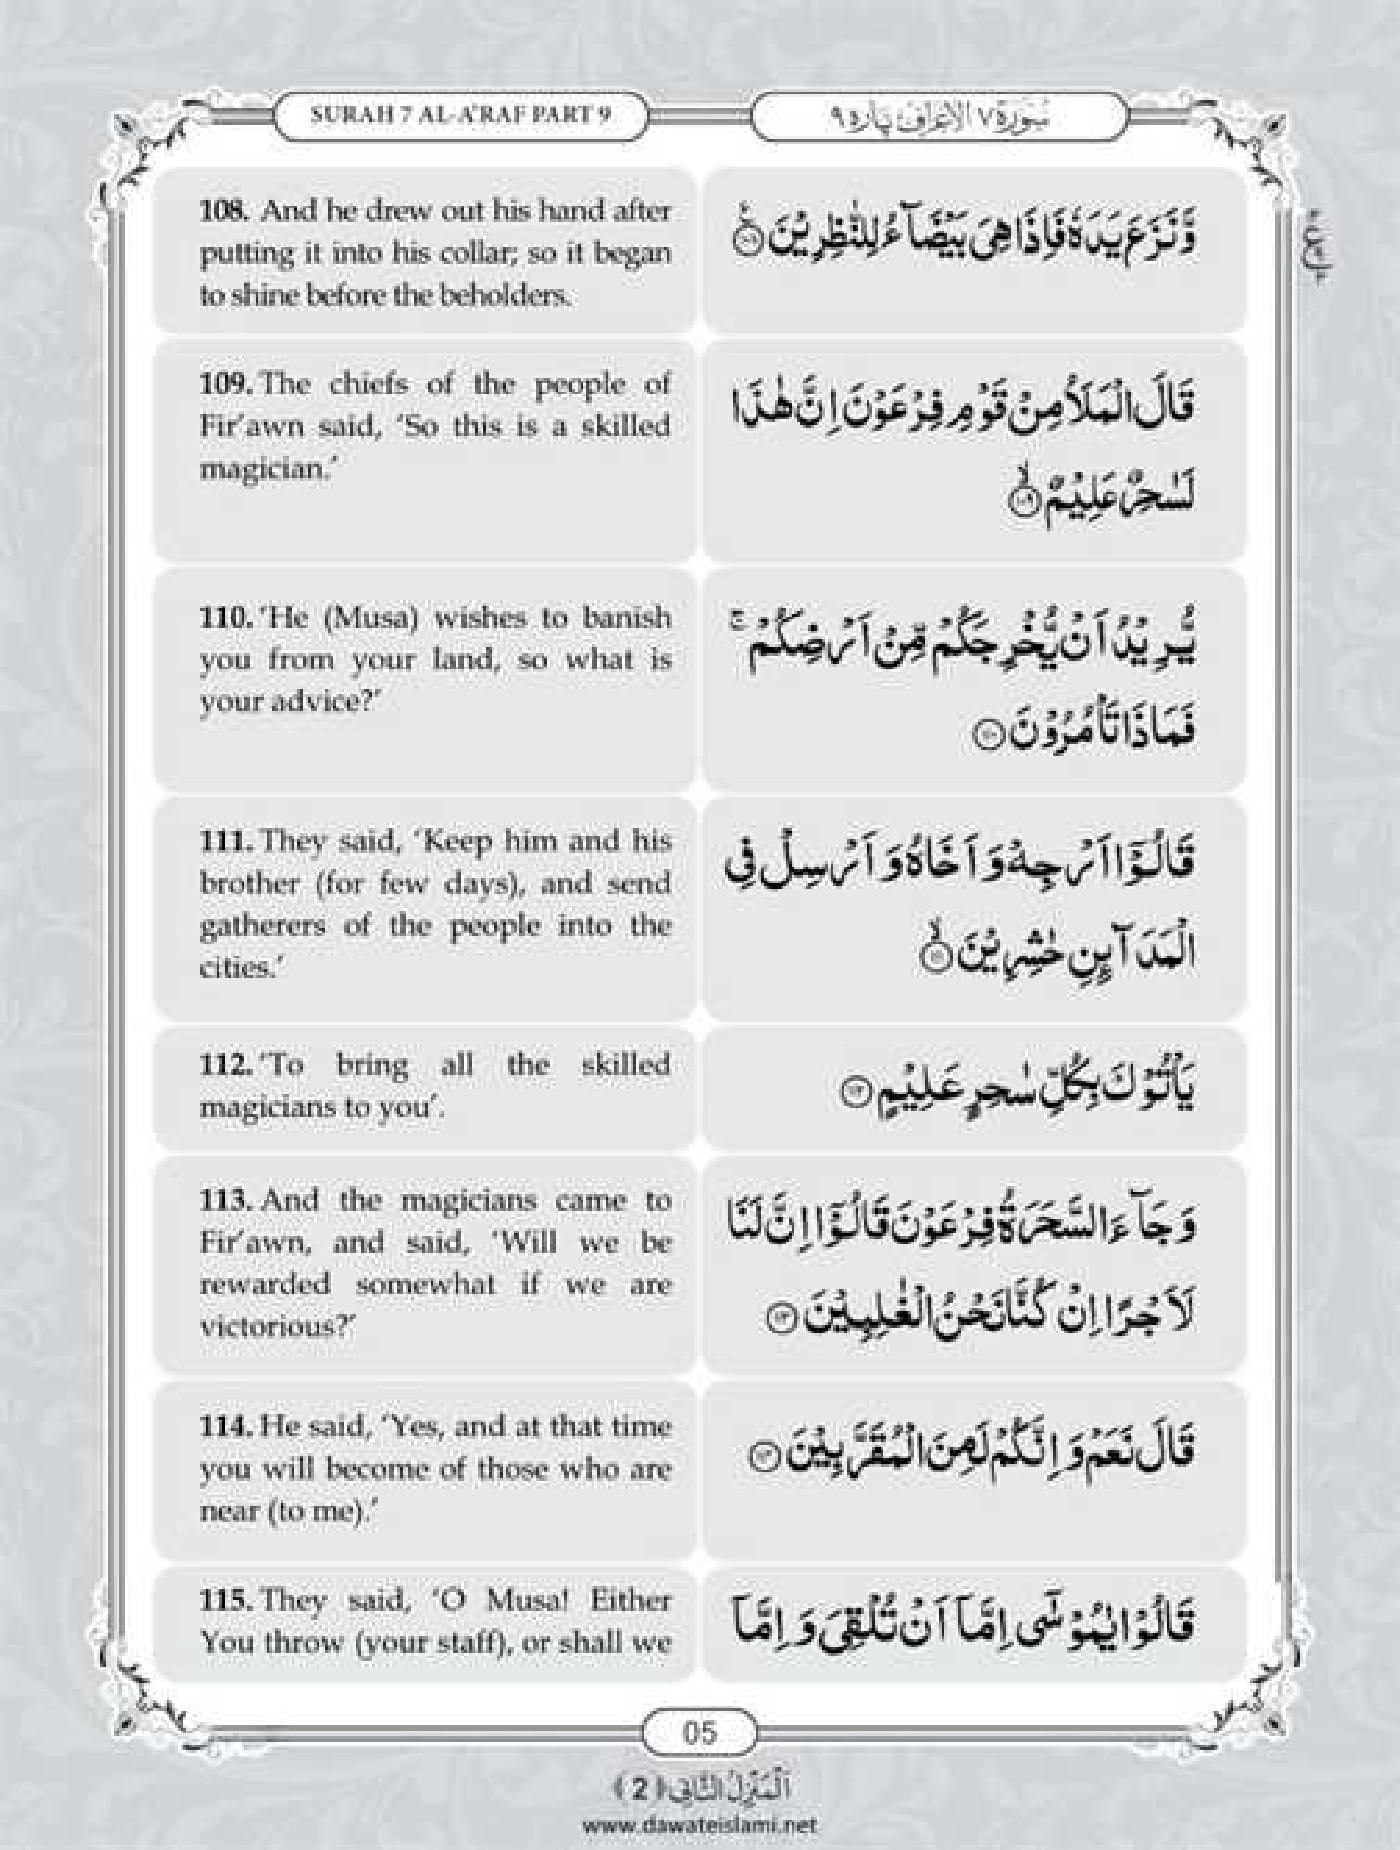 SURAH 7 AL-A'RAF PART 9
سُوْرَةُ ٧ الْاَعْرَاف پارہ ٩
108. And he drew out his hand after
putting it into his collar; so it began
to shine before the beholders.
وَّنَزَعَ يَدَهٗ فَاِذَا هِيَ بَيْضَآءُ لِلنّٰظِرِيْنَ ﴿١٠٨﴾
109. The chiefs of the people of
Fir'awn said, 'So this is a skilled
magician.'
قَالَ الْمَلَاُ مِنْ قَوْمِ فِرْعَوْنَ اِنَّ هٰذَا
لَسٰحِرٌ عَلِيْمٌ ﴿١٠٩﴾
110. 'He (Musa) wishes to banish
you from your land, so what is
your advice?'
يُّرِيْدُ اَنْ يُّخْرِجَكُمْ مِّنْ اَرْضِكُمْ ۚ
فَمَاذَا تَاْمُرُوْنَ ﴿١١٠﴾
111. They said, 'Keep him and his
brother (for few days), and send
gatherers of the people into the
cities.'
قَالُوْۤا اَرْجِهْ وَ اَخَاهُ وَ اَرْسِلْ فِي
الْمَدَآىِٕنِ حٰشِرِيْنَ ﴿١١١﴾
112. 'To bring all the skilled
magicians to you'.
يَاْتُوْكَ بِكُلِّ سٰحِرٍ عَلِيْمٍ ﴿١١٢﴾
113. And the magicians came to
Fir'awn, and said, 'Will we be
rewarded somewhat if we are
victorious?'
وَ جَآءَ السَّحَرَةُ فِرْعَوْنَ قَالُوْۤا اِنَّ لَنَا
لَاَجْرًا اِنْ كُنَّا نَحْنُ الْغٰلِبِيْنَ ﴿١١٣﴾
114. He said, 'Yes, and at that time
you will become of those who are
near (to me).'
قَالَ نَعَمْ وَ اِنَّكُمْ لَمِنَ الْمُقَرَّبِيْنَ ﴿١١٤﴾
115. They said, 'O Musa! Either
You throw (your staff), or shall we
قَالُوْا يٰمُوْسٰۤى اِمَّاۤ اَنْ تُلْقِيَ وَ اِمَّاۤ
05
اَلْمَنْزِلُ الثَّانِی ﴿2﴾
www.dawateislami.net